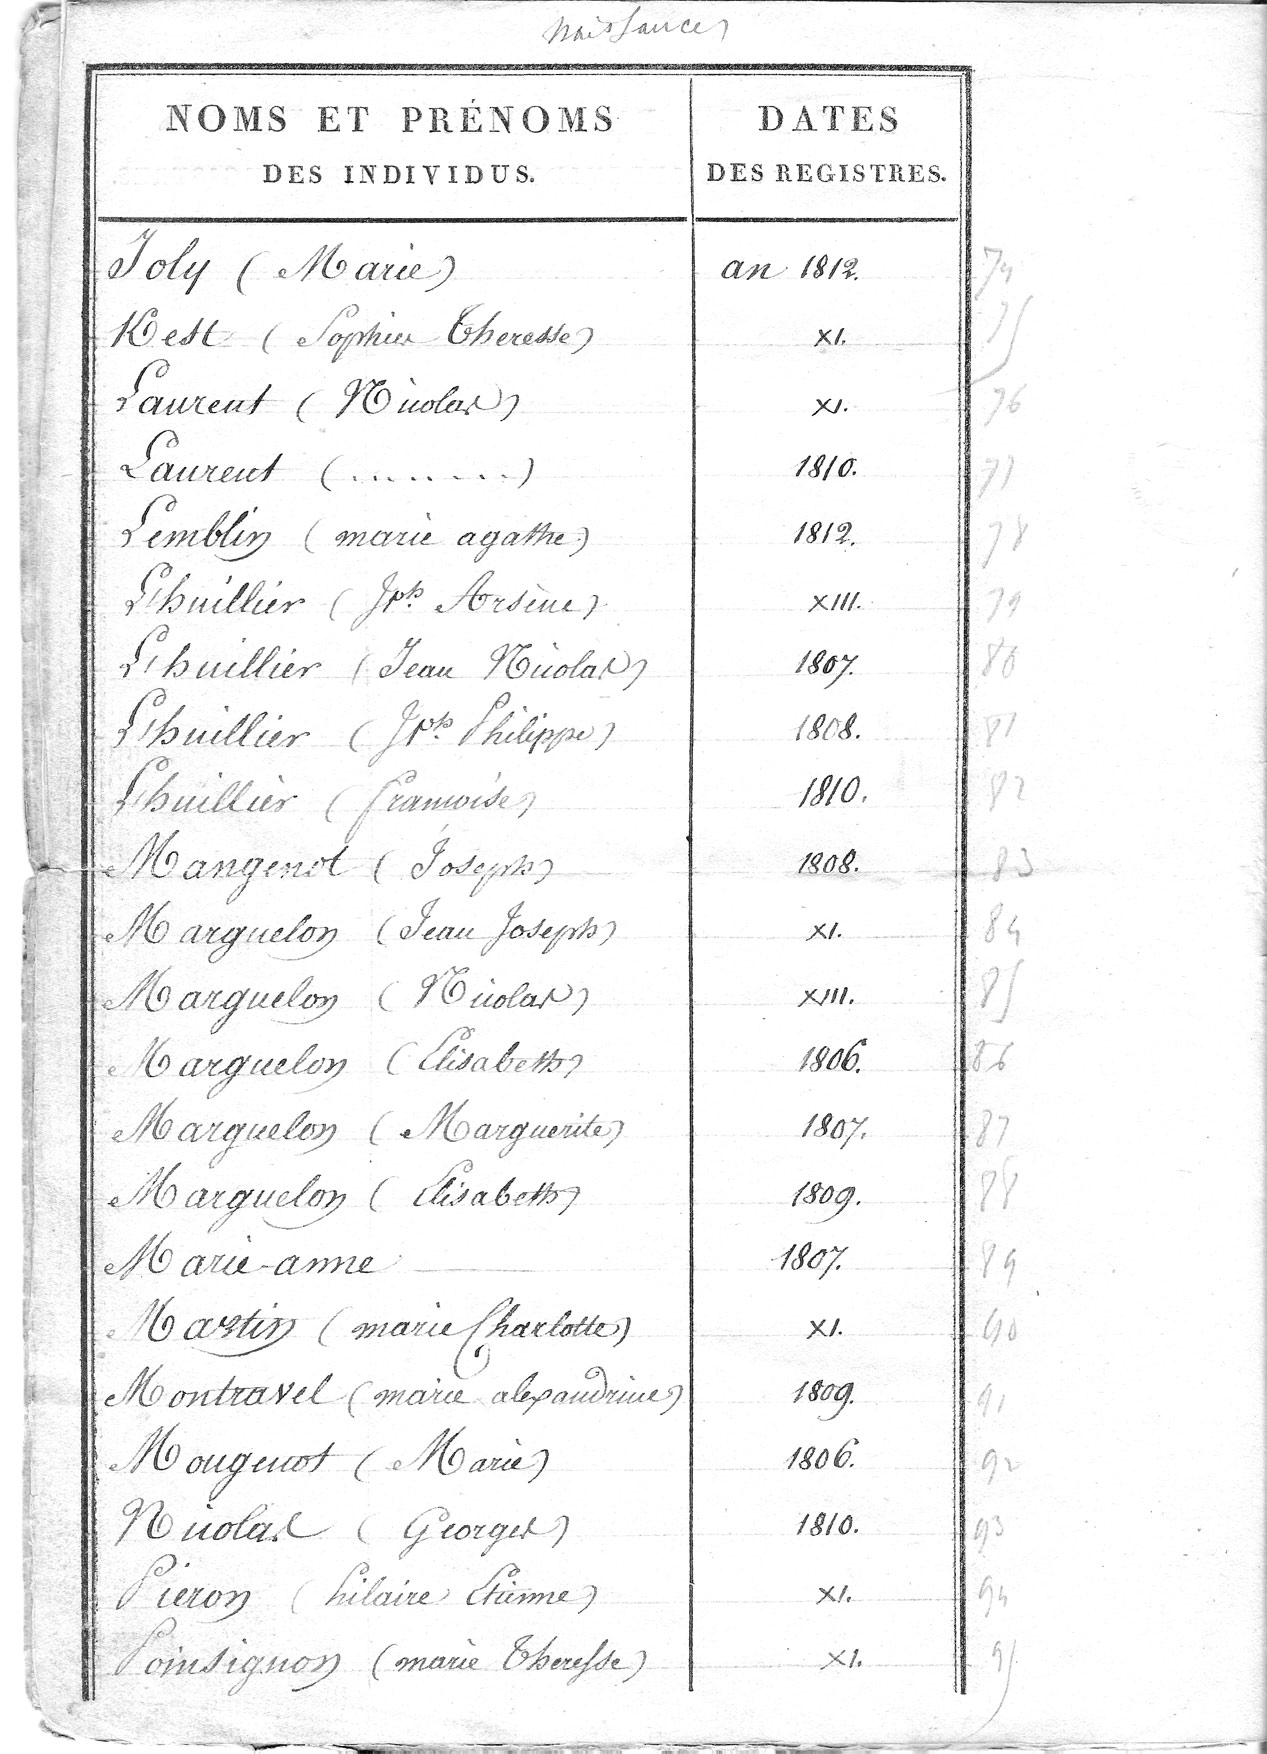 Naissances
NOMS ET PRÉNOMS DES INDIVIDUS. DATES DES REGISTRES.
Joly (Marie) an 1812. 74
Kest (Sophie Theresse) XI. 75
Laurent (Nicolas) XI. 76
Laurent (........) 1810. 77
Lemblin (marie agathe) 1812. 78
Lhuillier (Jph. Arsène) XIII. 79
Lhuillier (Jean Nicolas) 1807. 80
Lhuillier (Jph. Philippe) 1808. 81
Lhuillier (francoise) 1810. 82
Mangenot (Joseph) 1808. 83
Marguelon (Jean Joseph) XI. 84
Marguelon (Nicolas) XIII. 85
Marguelon (Elisabeth) 1806. 86
Marguelon (Marguerite) 1807. 87
Marguelon (Elisabeth) 1809. 88
Marie-anne 1807. 89
Martin (marie Charlotte) XI. 90
Montravel (marie alexandrine) 1809. 91
Mougenot (Marie) 1806. 92
Nicolas (Georges) 1810. 93
Pieron (hilaire Etienne) XI. 94
Poinsignon (marie Theresse) XI. 95